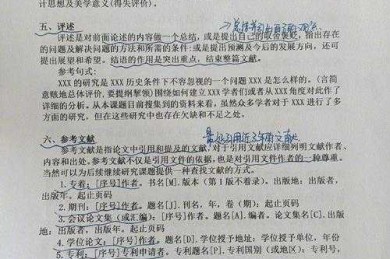 计思想及美学意义(得失评价)。
五、评述
评述是对前面论述的内容做一个总结,或是提出自己的取舍褒贬,指出存在
的问题及解决问题的方法和所需的条件;或是提出预测及今后的发展方向,还可
提出展望和希望。结语的作用是突出重点,结束整篇文献。
参考句式:
XXX 的研究是 XXX 历史条件下不容忽视的一个问题 XXX 是怎么样的。(言简
意赅地总体评价,要提纲挈领)围绕如何建立 XXX 学者们或者从 XXX 角度对此作了
详细的分析。从本课题目前搜集到的资料来看,虽然众多学者对于 XXX 进行了多
方面的研究,但在这些研究中也存在欠缺和不足之处。
六、参考文献
最好引用近3年的文献
参考文献是指论文中引用和提及的文献,对于引用文献应详细列明文献作者、
内容和出处。参考文献不仅是引用文件的依据,也是对引用文件作者的一种尊重,
当然可以为后续继续研究课题提供一种查找文献的方式。
1.专著:[序号]作者。书名[M].版本(第 1 版不着录)。出版地:出版者,
出版年。起止页码
2.期刊:[序号]作者。题名[J].刊名,年,卷(期):起止页码
3.会议论文集(或汇编):[序号]作者。题名[A].编者。论文集名[C].出版
地:出版者,出版年。起止页码
4.学位论文:[序号]作者。题名[D].学位授予地址:学位授予单位,年份
5.专利:[序号]专利申请者。专利题名[P].专利国别(或地区):专利号,